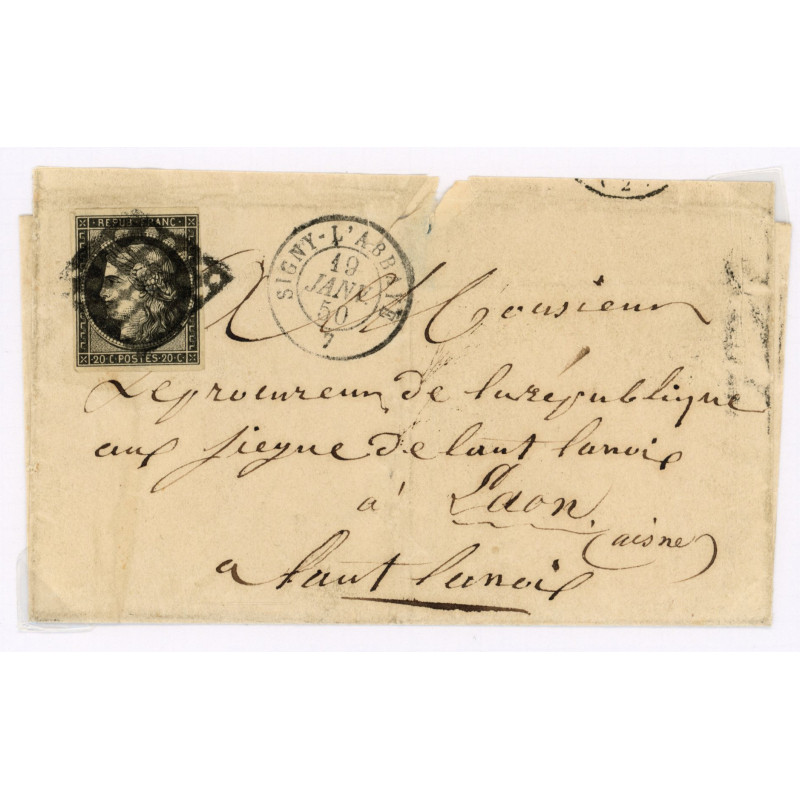 REPUB. FRANC.
20·C. POSTES·20·C.
SIGNY-L'ABBAYE
19
JANV.
50
7
2
A Monsieur
Leprocureur de larépublique
aux siegne de laut lanois
a' Laon
(aisne)
a laut lanois